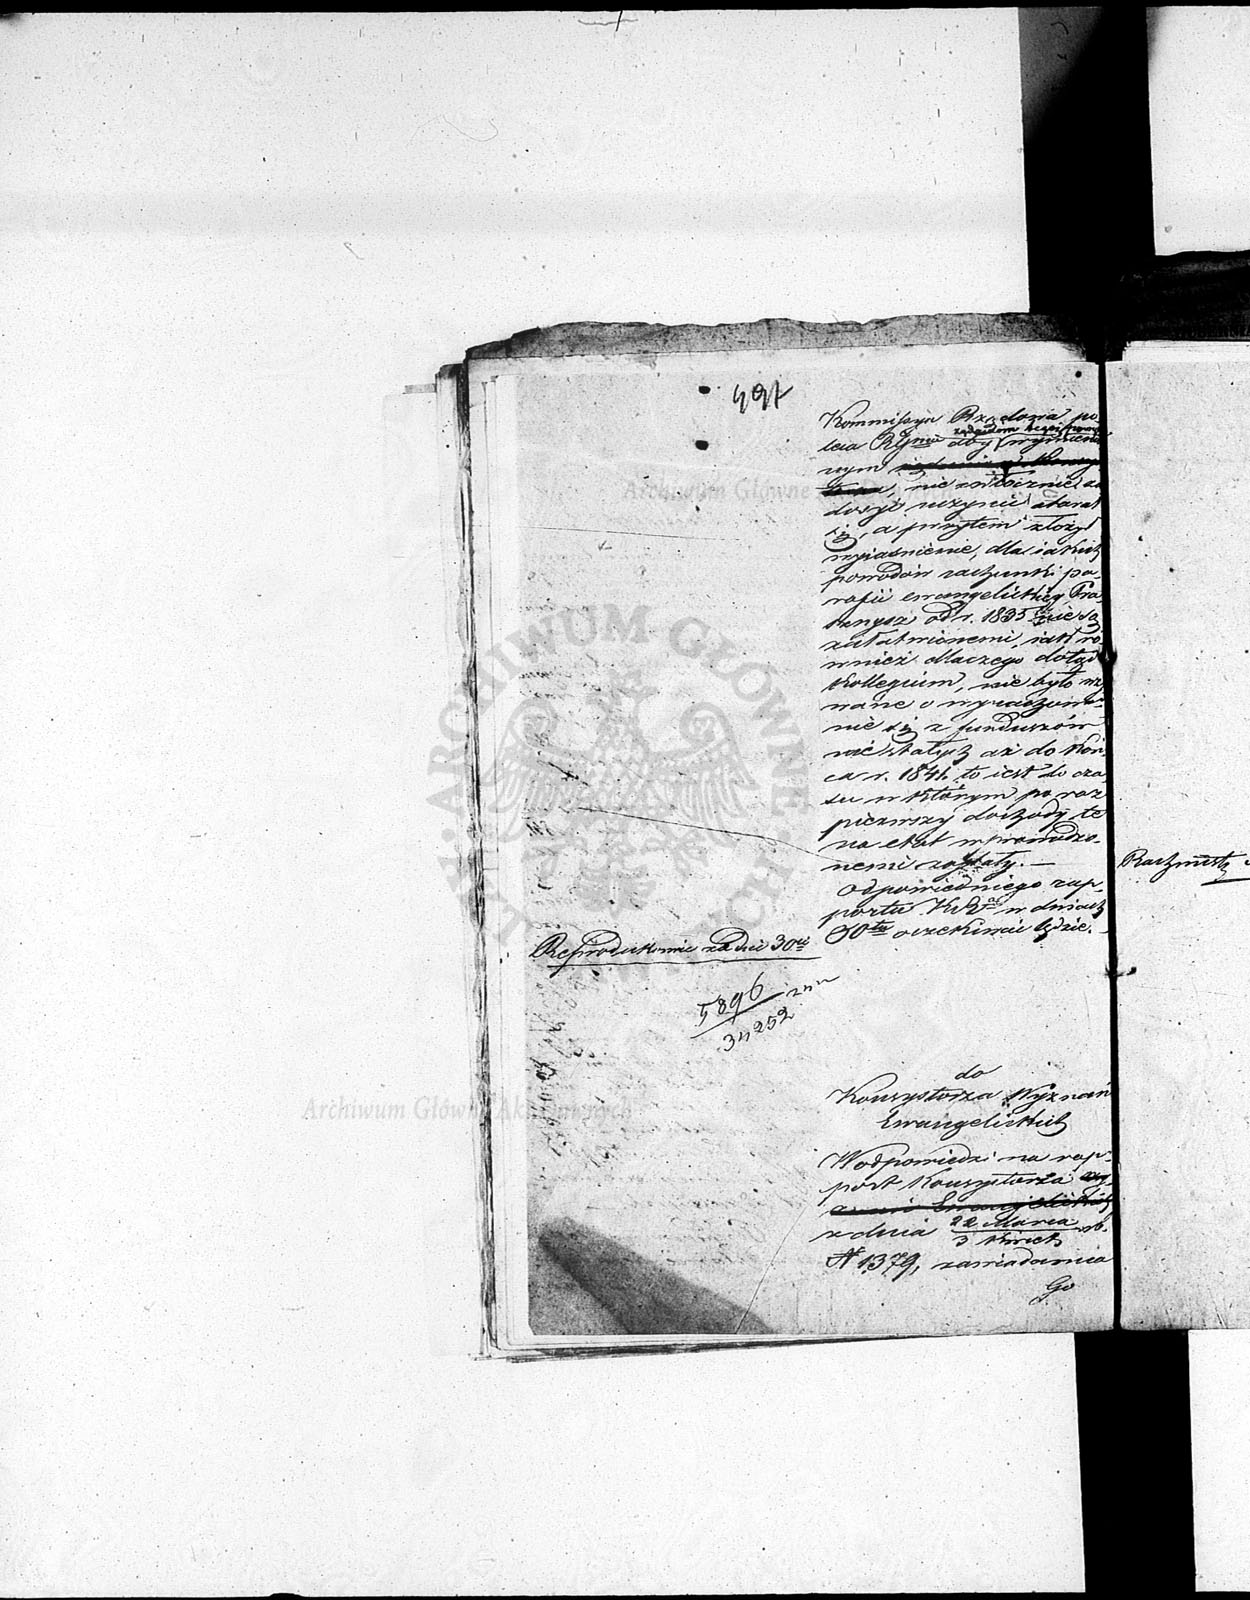 497
Kommissya Rządowa po-
leca Rejno aby żądaniom wymienio-
nym
nie zwłocznie za
dosyć uczynić starał
się, a przytem złożył
wyiaśnienie, dla iakich
powodów rachunki pa-
rafii ewangelickiey Pra
sznysz od r. 1835 nie są
załatwionemi, iak ro-
wnież dlaczego dotąd
Kollegium, nie było wez
wane o wyrachowa-
nie się z funduszów
niestałych aż do koń-
ca r. 1841. to iest do cza-
su w którym po raz
pierwszy dochody te
na etat wprowadzo-
nemi zostały. —
Odpowiedniego rap-
portu w dniach
30tu oczekiwać będzie.
Reprodukowac za dni 30ci
5896
34252
do
Konsystorza Wyznań
Ewangelickich
W odpowiedzi na rap-
port Konsystorza wy-
znań Ewangelickich
z dnia 22 Marca / 3 Kwiet. rb.
N 1379, zawiadamia
Go
Archiwum Główne Akt Dawnych